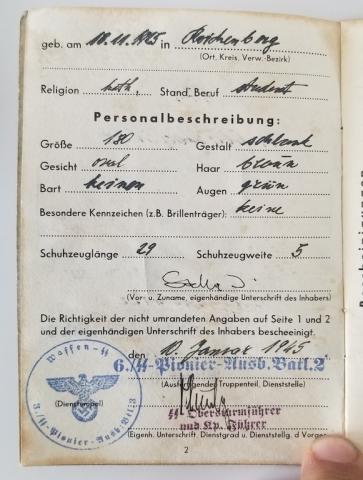 geb. am 10.11.1925 in Reichenberg
(Ort, Kreis, Verw.-Bezirk)
Religion kath. Stand, Beruf Student
Personalbeschreibung:
Größe 180 Gestalt schlank
Gesicht oval Haar braun
Bart keinen Augen grün
Besondere Kennzeichen (z.B. Brillenträger): keine
Schuhzeuglänge 29 Schuhzeugweite 5
(Vor- u. Zuname, eigenhändige Unterschrift des Inhabers)
Die Richtigkeit der nicht umrandeten Angaben auf Seite 1 und 2
und der eigenhändigen Unterschrift des Inhabers bescheinigt.
den 10. Januar 1945.
6./SS-Pionier-Ausb.Batl.2
(Ausfertigender Truppenteil, Dienststelle)
Waffen-SS
(Dienststempel)
SS-Obersturmführer
und Kp. Führer
(Eigenh. Unterschrift, Dienstgrad u. Dienststellg. d. Vorges
2